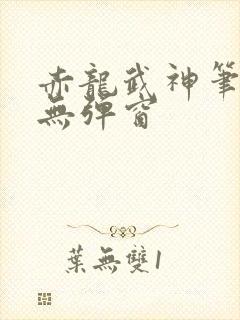 赤龍武神筆
無彈窗
葉無雙1